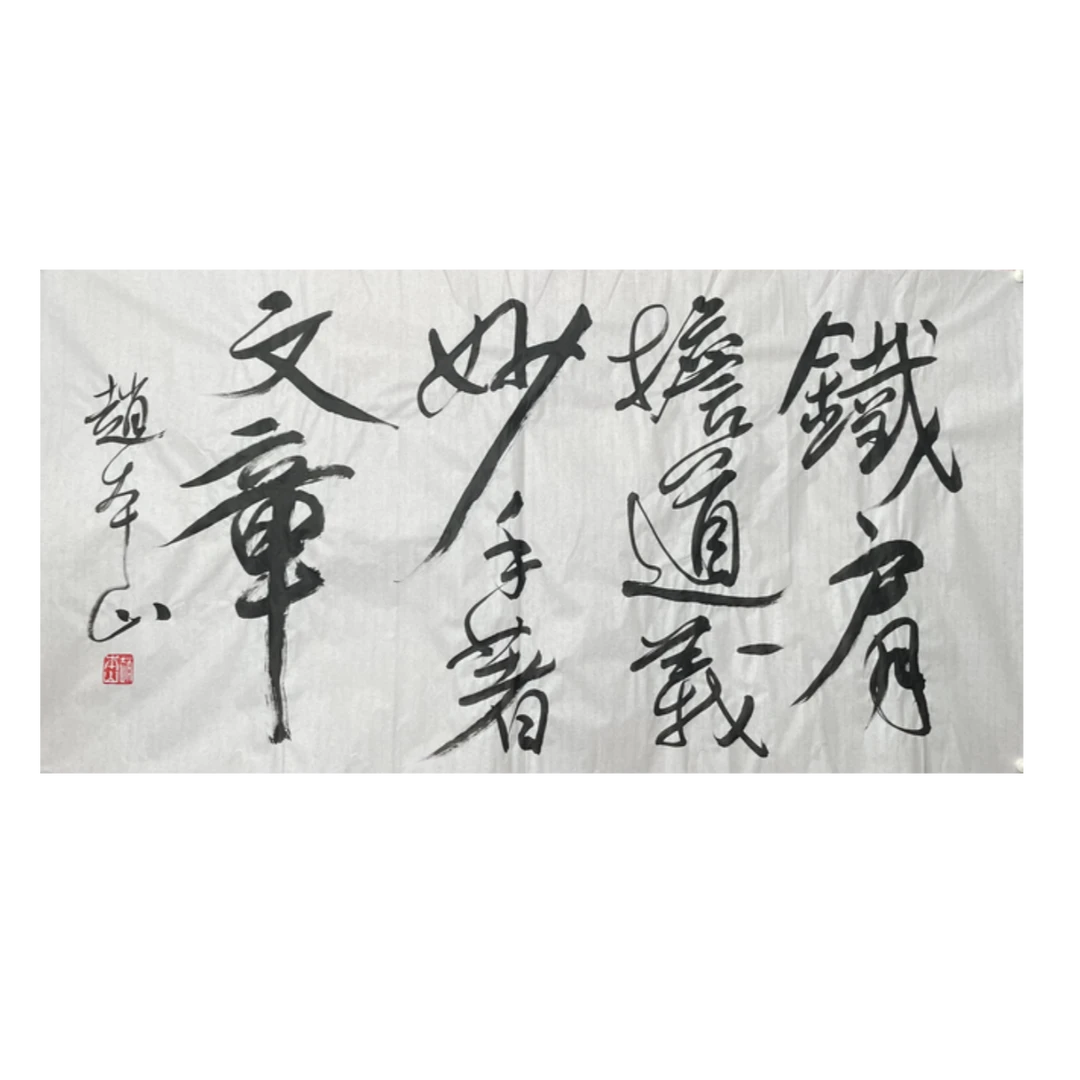 鐵肩
擔道義
妙手著
文章
趙本山